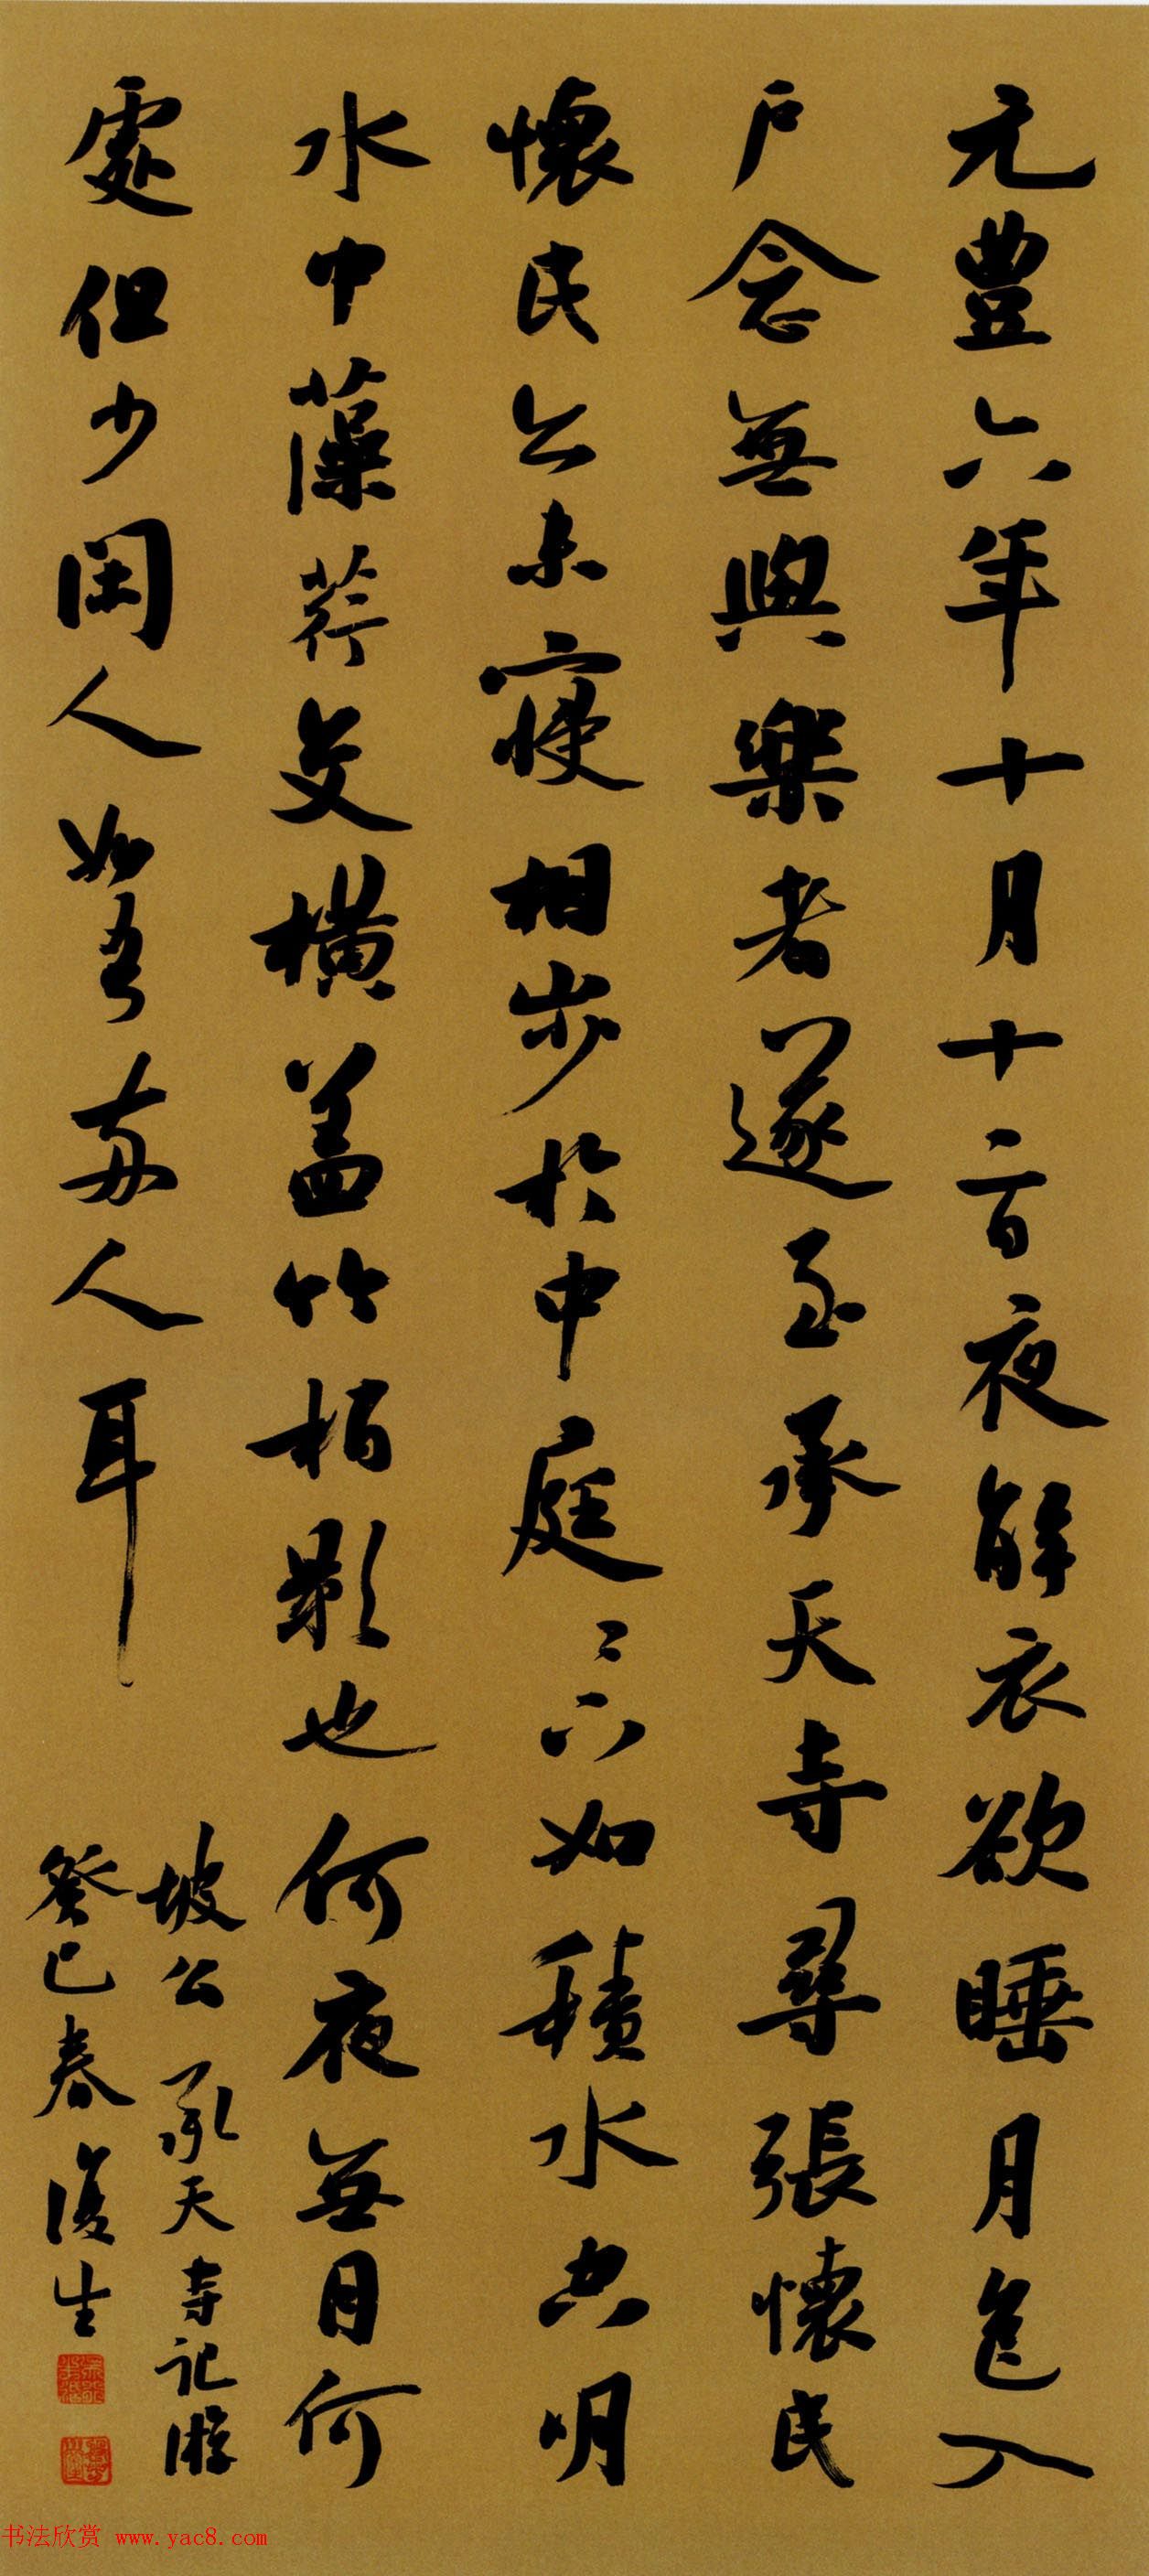 元豐六年十月十二日夜解衣欲睡月色入
户念無與樂者遂至承天寺尋張懷民
懷民亦未寢相步於中庭々下如積水空明
水中藻荇交横盖竹柏影也何夜無月何
處但少閑人如吾兩人耳
坡公承天寺記游
癸巳春復生
书法欣赏 www.yac8.com